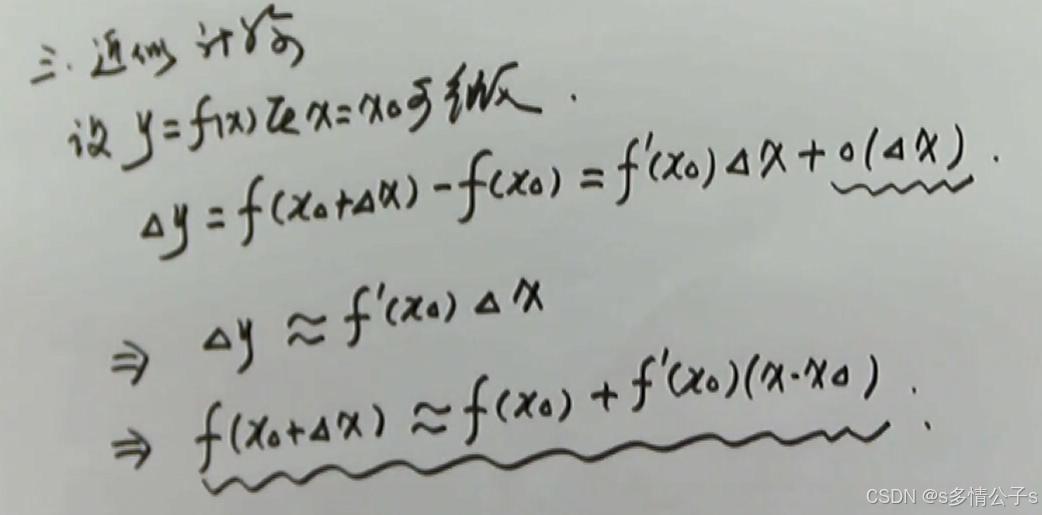 三. 近似计算
设 y=f(x)在x=x₀可微.
Δy=f(x₀+Δx)-f(x₀)=f'(x₀)Δx+o(Δx).
⇒ Δy≈f'(x₀)Δx
⇒ f(x₀+Δx)≈f(x₀)+f'(x₀)(x-x₀).
CSDN @s多情公子s